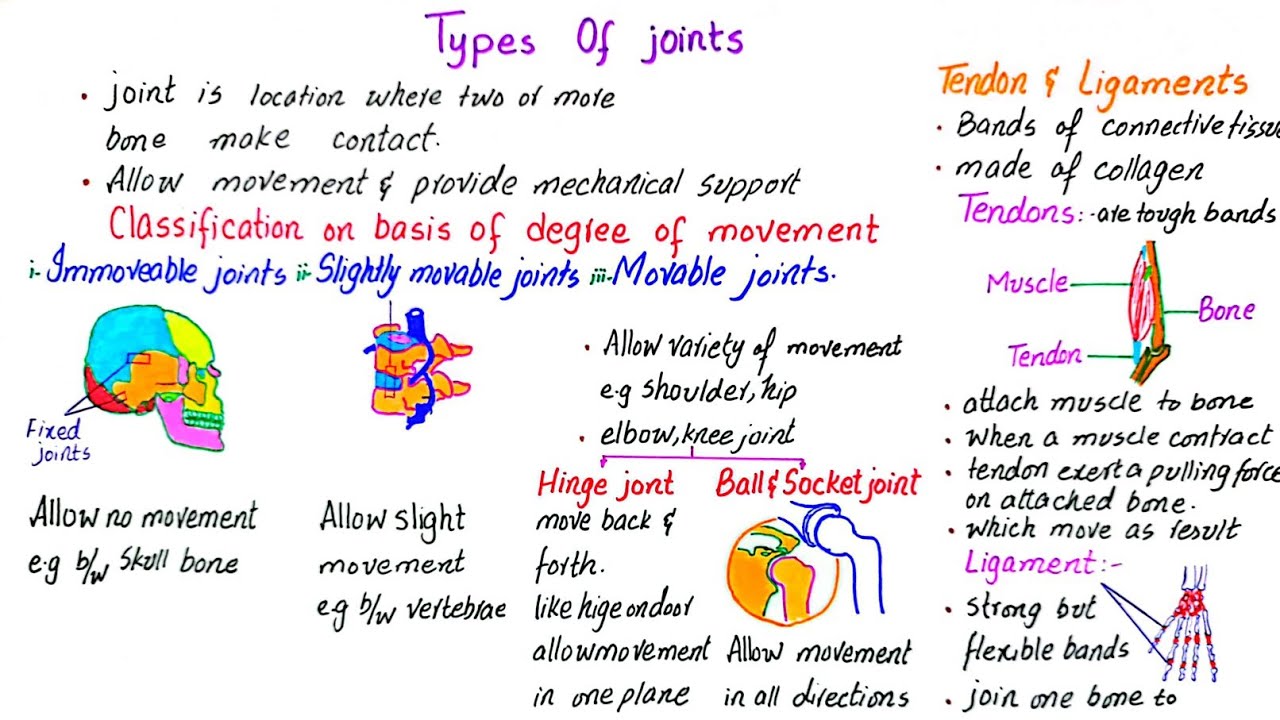 Types Of joints
• joint is location where two or more
bone make contact.
• Allow movement & provide mechanical support
Classification on basis of degree of movement
i- Immoveable joints ii- Slightly movable joints iii- Movable joints.
Fixed
joints
Allow no movement
e.g b/w Skull bone
Allow slight
movement
e.g b/w vertebrae
• Allow variety of movement
e.g shoulder, hip
• elbow, knee joint
Hinge jont
move back &
forth.
like hige on door
allow movement
in one plane
Ball & Socket joint
Allow movement
in all directions
Tendon & Ligaments
• Bands of connective tissue
• made of collagen
Tendons:- are tough bands
Muscle
Bone
Tendon
• attach muscle to bone
• when a muscle contract
• tendon exert a pulling force
on attached bone.
• which move as result
Ligament:-
• strong but
flexible bands
• join one bone to